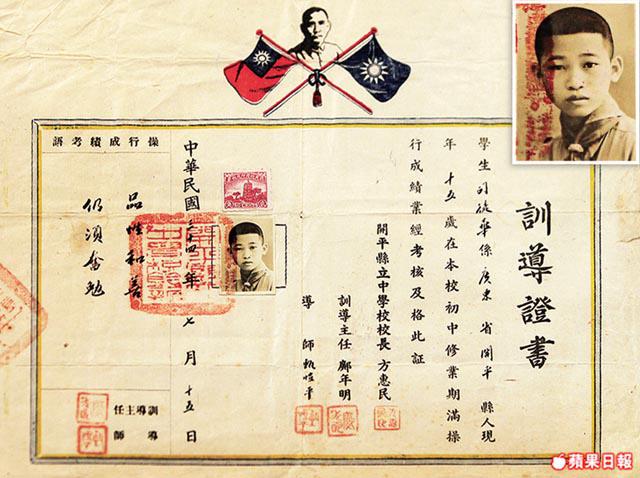 訓導證書
學生司徒華係廣東省開平縣人現
年十五歲在本校初中修業期滿操
行成績業經考核及格此証
開平縣立中學校校長 方惠民
訓導主任 鄺年明
導師 甄
中華民國三十四年七月十五日
操行成績考語
品性和善
仍須奮勉
訓導主任
導師
蘋果日報